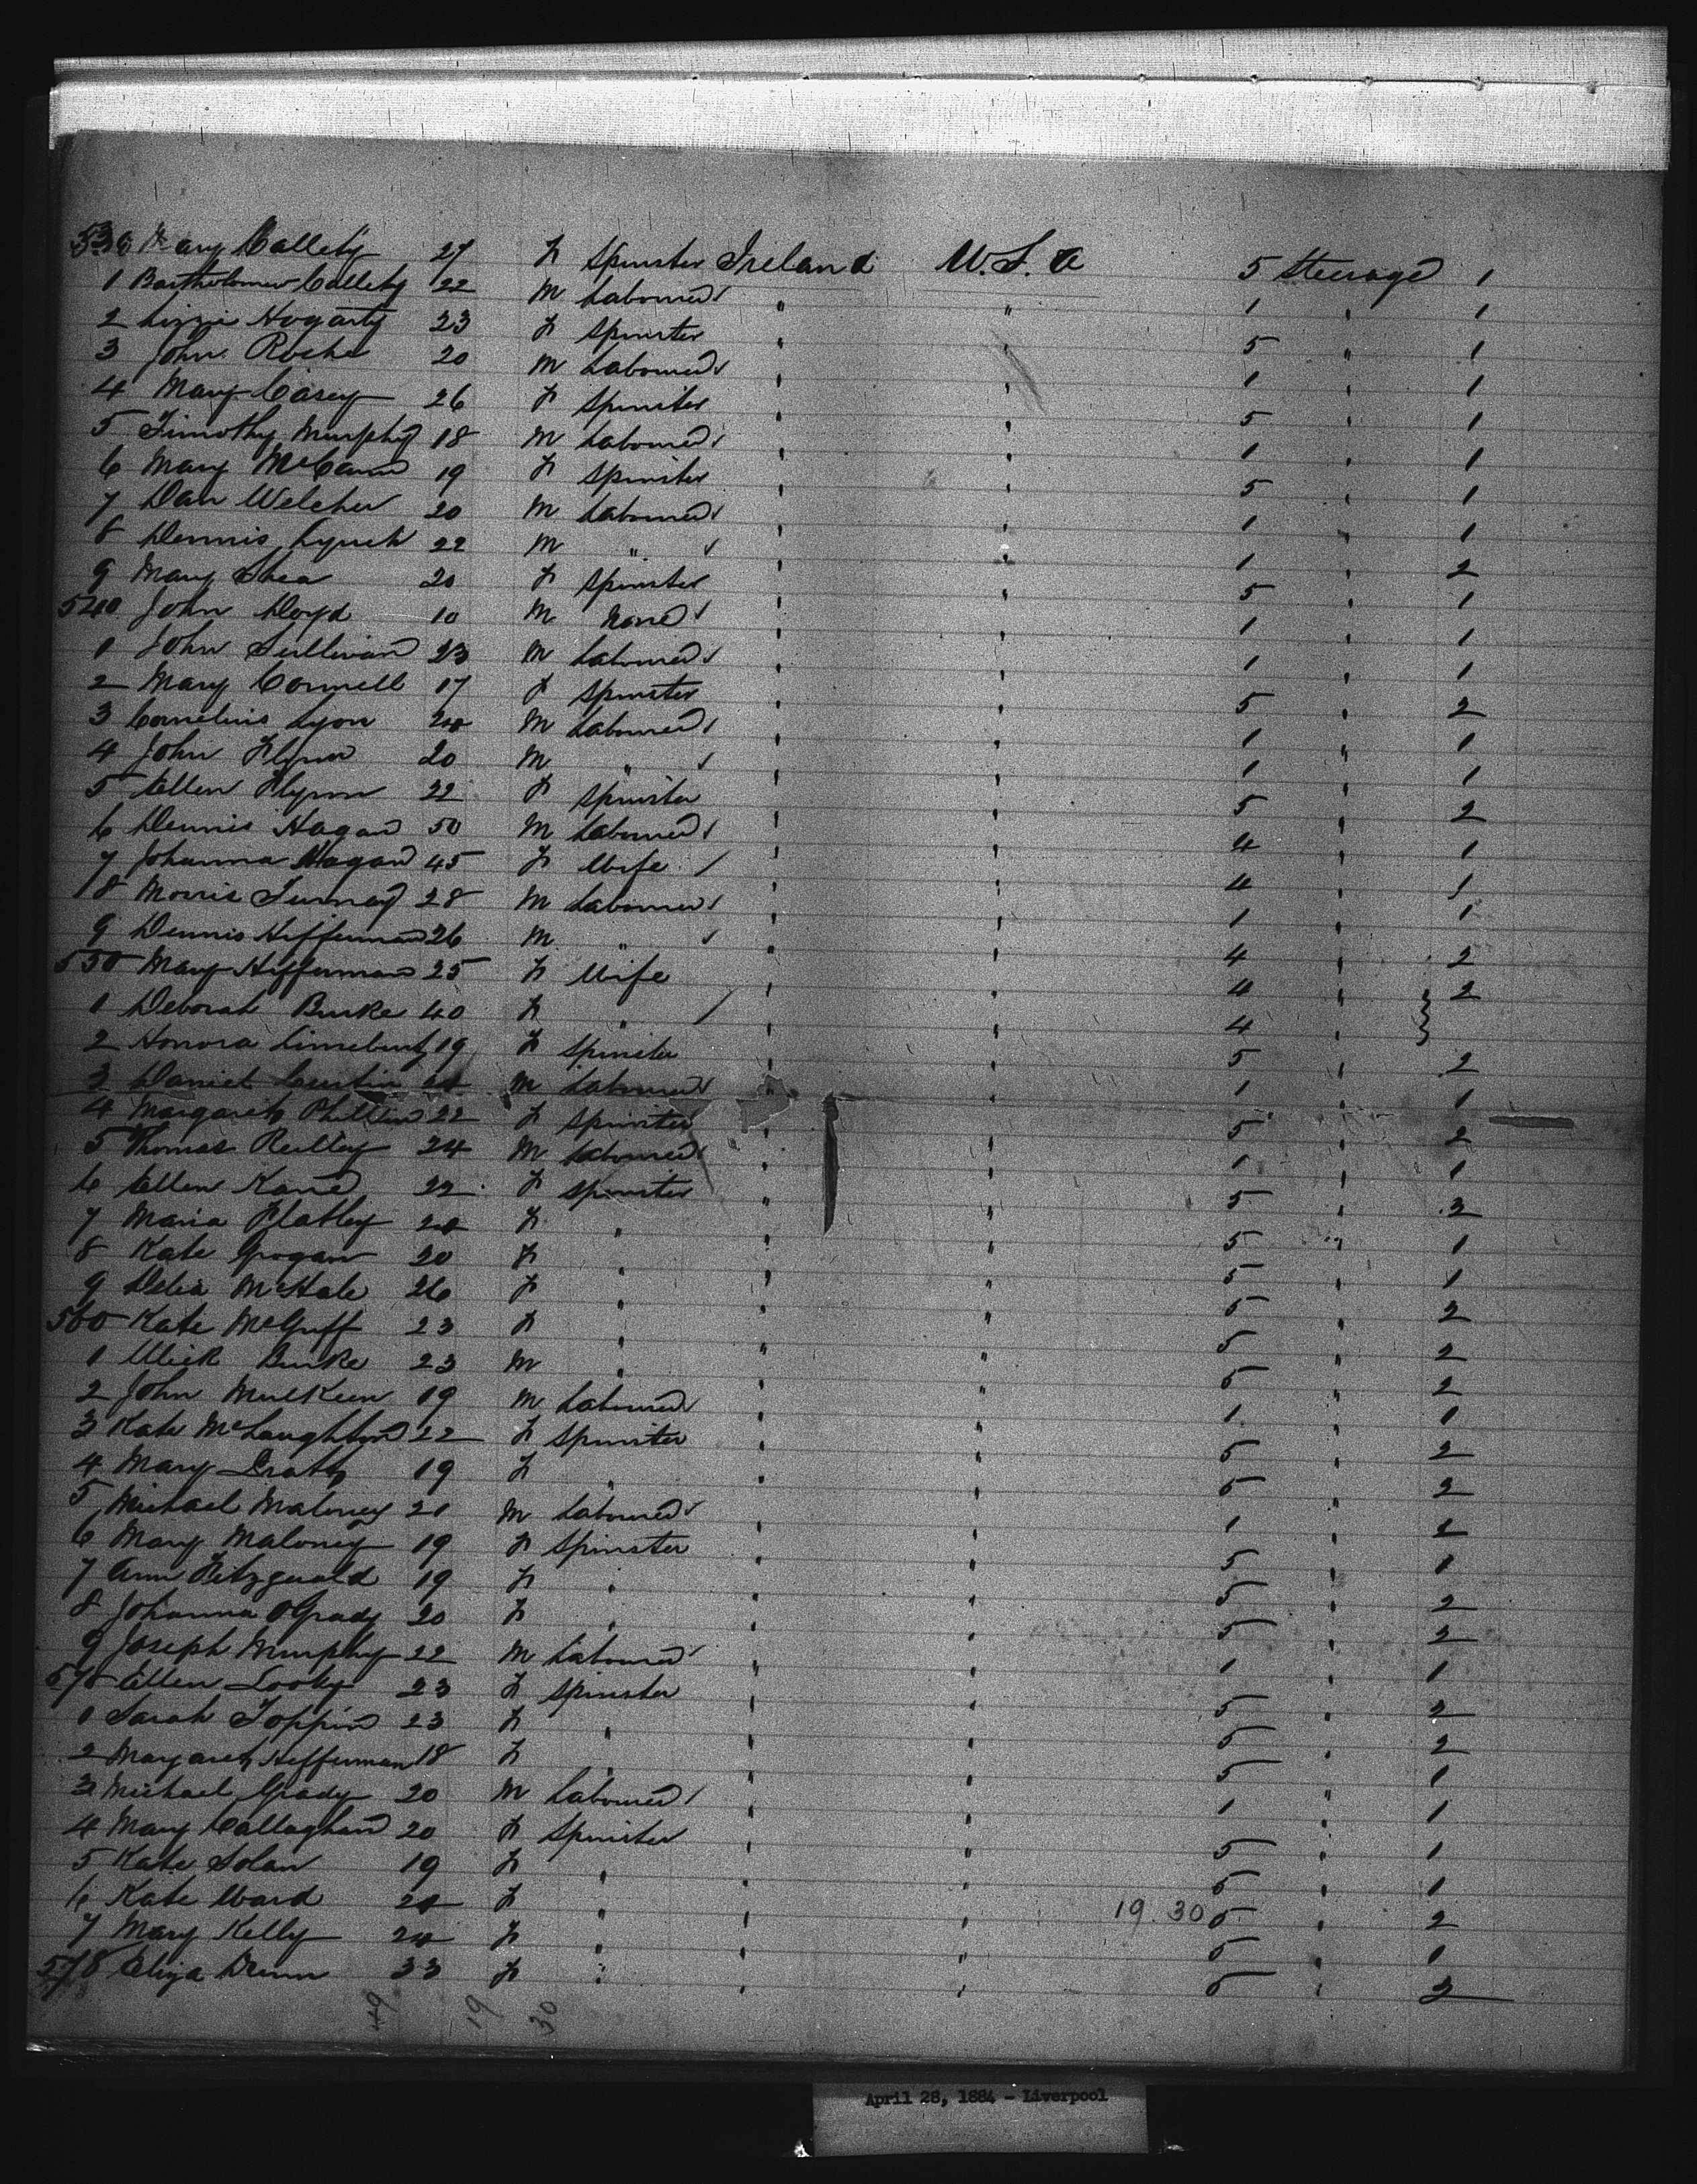 530 Mary Callety 27 F Spinster Ireland U.S.A 5 Steerage 1
1 Bartholomew Callety 22 M Labourer " " 1 " 1
2 Lizzie Hogarty 23 F Spinster " " 5 " 1
3 John Roche 20 M Labourer " " 1 " 1
4 Mary Casey 26 F Spinster " " 5 " 1
5 Timothy Murphy 18 M Labourer " " 1 " 1
6 Mary McCann 19 F Spinster " " 5 " 1
7 Dan Welcher 20 M Labourer " " 1 " 1
8 Dennis Lynch 22 M " " " 1 " 2
9 Mary Shea 20 F Spinster " " 5 " 1
540 John Lloyd 10 M None " " 1 " 1
1 John Sullivan 23 M Labourer " " 1 " 1
2 Mary Connell 17 F Spinster " " 5 " 2
3 Cornelius Lyon M Labourer " " 1 " 1
4 John Flynn 20 M " " " 1 " 1
5 Ellen Flynn 22 F Spinster " " 5 " 2
6 Dennis Hagan 50 M Labourer " " 4 " 1
7 Johanna Hagan 45 F Wife " " 4 " 1
8 Morris 28 M Labourer " " 1 " 1
9 Dennis Hefferman 26 M " " " 4 " 2
550 Mary Hefferman 25 F Wife " " 4 " 2
1 Deborah Burke 40 F " " " 4 "
2 Honora 19 F Spinster " " 5 " 2
3 Daniel M Labourer " " 1 " 1
4 Margaret 22 F Spinster " " 5 " 2
5 Thomas Reilley 24 M Labourer " " 1 " 1
6 Ellen Kane 22 F Spinster " " 5 " 2
7 Maria Flatley F " " " 5 " 1
8 Kate Grogan 20 F " " " 5 " 1
9 Delia McHale 26 F " " " 5 " 2
560 Kate McGuff 23 F " " " 5 " 2
1 Mick Burke 23 M " " " 5 " 2
2 John Mulkeen 19 M Labourer " " 1 " 1
3 Kate McLaughlin 22 F Spinster " " 5 " 2
4 Mary 19 F " " " 5 " 2
5 Michael Maloney 21 M Labourer " " 1 " 1
6 Mary Maloney 19 F Spinster " " 5 " 1
7 Ann Fitzgerald 19 F " " " 5 " 2
8 Johanna OGrady 20 F " " " 5 " 2
9 Joseph Murphy 22 M Labourer " " 1 " 1
570 Ellen Looby 23 F Spinster " " 5 " 2
1 Sarah Toppin 23 F " " " 5 " 2
2 Margaret Hefferman 18 F " " " 5 " 1
3 Michael Grady 20 M Labourer " " 1 " 1
4 Mary Callaghan 20 F Spinster " " 5 " 1
5 Kate Solan 19 F " " " 5 " 1
6 Kate Ward F " " " 19.30 5 " 2
7 Mary Kelly F " " " 5 " 1
578 Eliza Drum 33 F " " " 5 " 2
49 19 30
April 28, 1884 - Liverpool